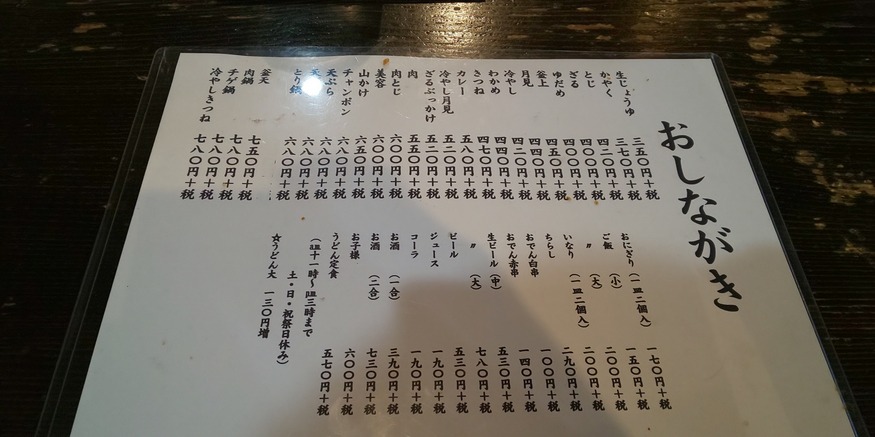 おしながき
生じょうゆ 三五〇円+税
かやく 三七〇円+税
とじ 四二〇円+税
ざる 四〇〇円+税
ゆだめ 四〇〇円+税
釜上 四五〇円+税
月見 四二〇円+税
冷やし 四四〇円+税
わかめ 四四〇円+税
きつね 四七〇円+税
カレー 五八〇円+税
冷やし月見 五二〇円+税
ざるぶっかけ 五二〇円+税
肉 五五〇円+税
肉とじ 六〇〇円+税
美容 六〇〇円+税
山かけ 六五〇円+税
チャンポン 六八〇円+税
天ぷら 六八〇円+税
天 六八〇円+税
とり鍋 六八〇円+税
釜天 七五〇円+税
肉鍋 七八〇円+税
チゲ鍋 七八〇円+税
冷やしきつね 七八〇円+税
おにぎり（一皿二個入） 一七〇円+税
ご飯（小） 一五〇円+税
〃（大） 二〇〇円+税
いなり（一皿二個入） 二〇〇円+税
ちらし 二九〇円+税
おでん白串 一〇〇円+税
おでん赤串 一四〇円+税
生ビール（中） 五三〇円+税
〃（大） 七八〇円+税
ビール 五三〇円+税
ジュース 一九〇円+税
コーラ 一九〇円+税
お酒（一合） 三九〇円+税
お酒（二合） 七三〇円+税
お子様 六〇〇円+税
うどん定食 五七〇円+税
（昼十一時～昼三時まで
土・日・祝祭日休み）
☆うどん大 一三〇円増